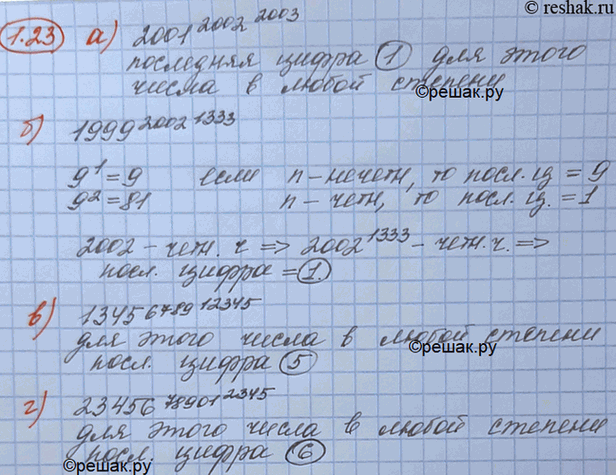 © reshak.ru
1.23 а) 2001^2002^2003
последняя цифра 1 для этого
числа в любой степени
©решак.ру
б) 1999^2002^1333
9^1 = 9 если n - нечетн, то посл. ц = 9
9^2 = 81 n - четн, то посл. ц. = 1
2002 - четн. ч => 2002^1333 - четн. ч. =>
посл. цифра = 1.
в) 1345^6789^12345
для этого числа в любой степени
©решак.ру
посл. цифра 5
г) 23456^78901^2345
для этого числа в любой степени
посл. цифра 6
©решак.ру